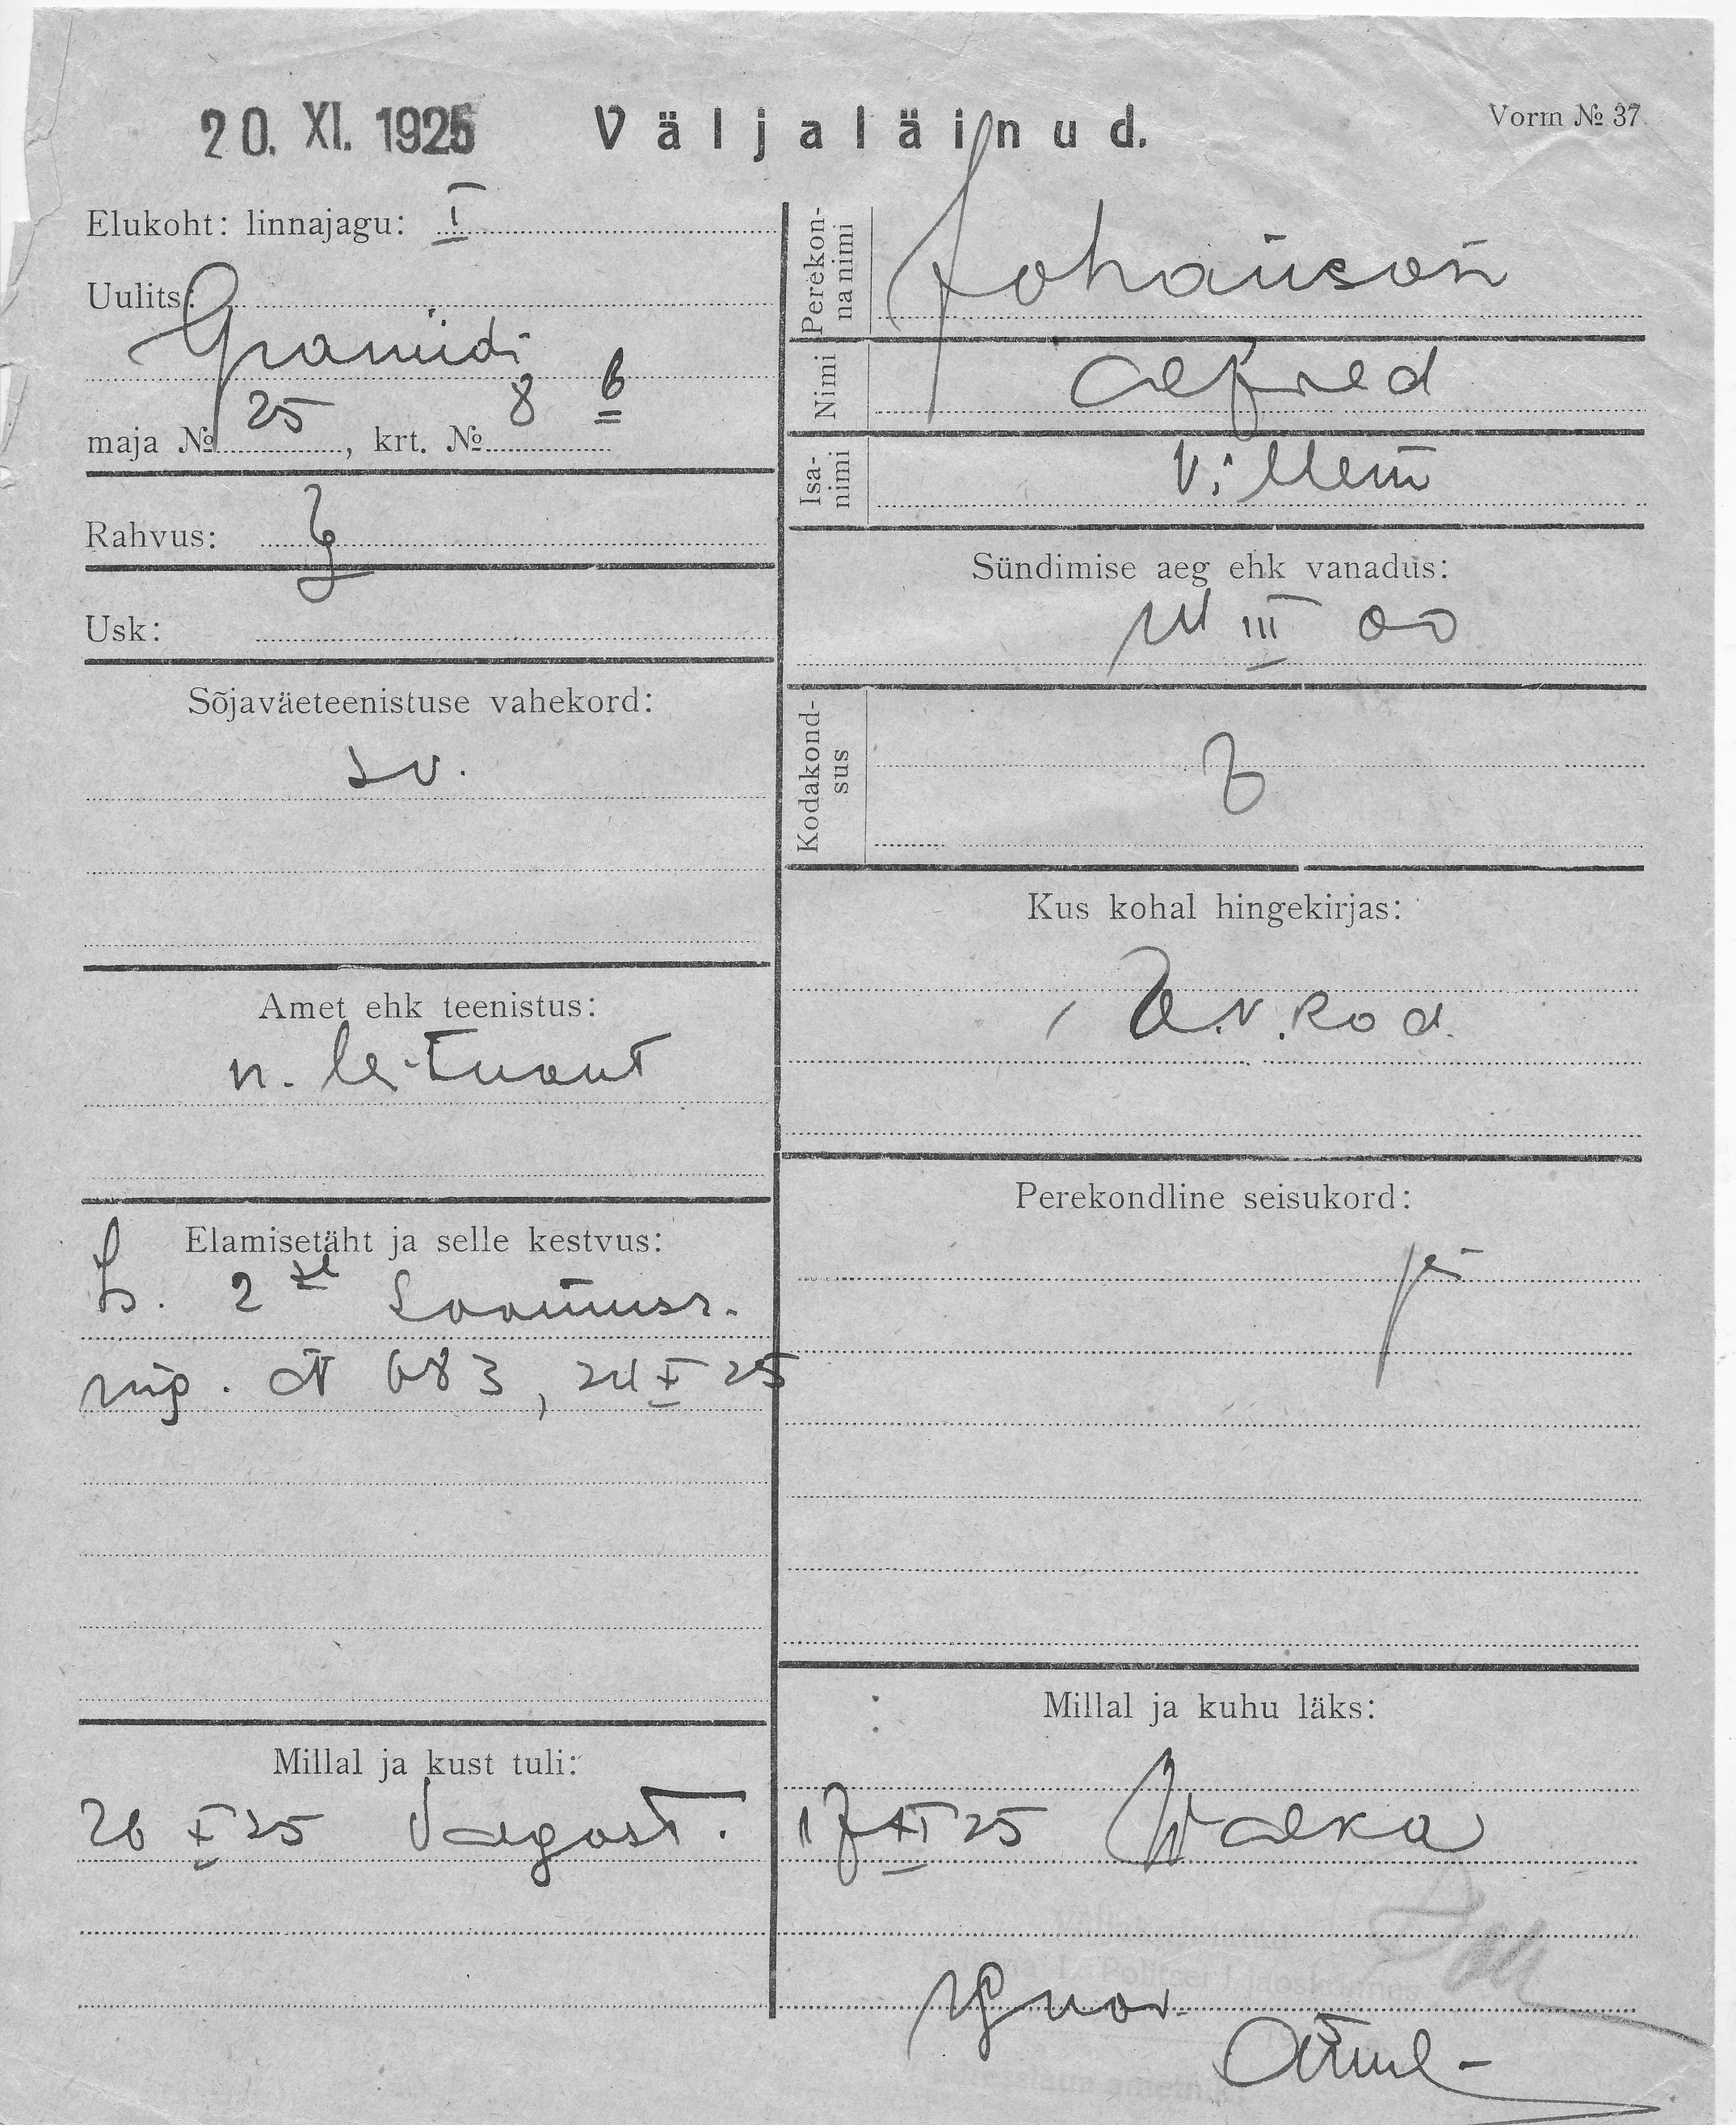 20. XI. 1925 Väljaläinud. Vorm № 37
Elukoht: linnajagu: I
Uulits:
maja № 25, krt. № 8 6
Rahvus:
Usk:
Sõjaväeteenistuse vahekord:
sv.
Amet ehk teenistus:
n. leitnant
Elamisetäht ja selle kestvus:
2
№ 683, 24 X 25
Millal ja kust tuli:
26 X 25
Perekonnanimi Johanson
Nimi Alfred
Isanimi Villem
Sündimise aeg ehk vanadus:
III 00
Kodakondsus
Kus kohal hingekirjas:
E.v. kod.
Perekondline seisukord:
Millal ja kuhu läks:
17 XI 25 Walka